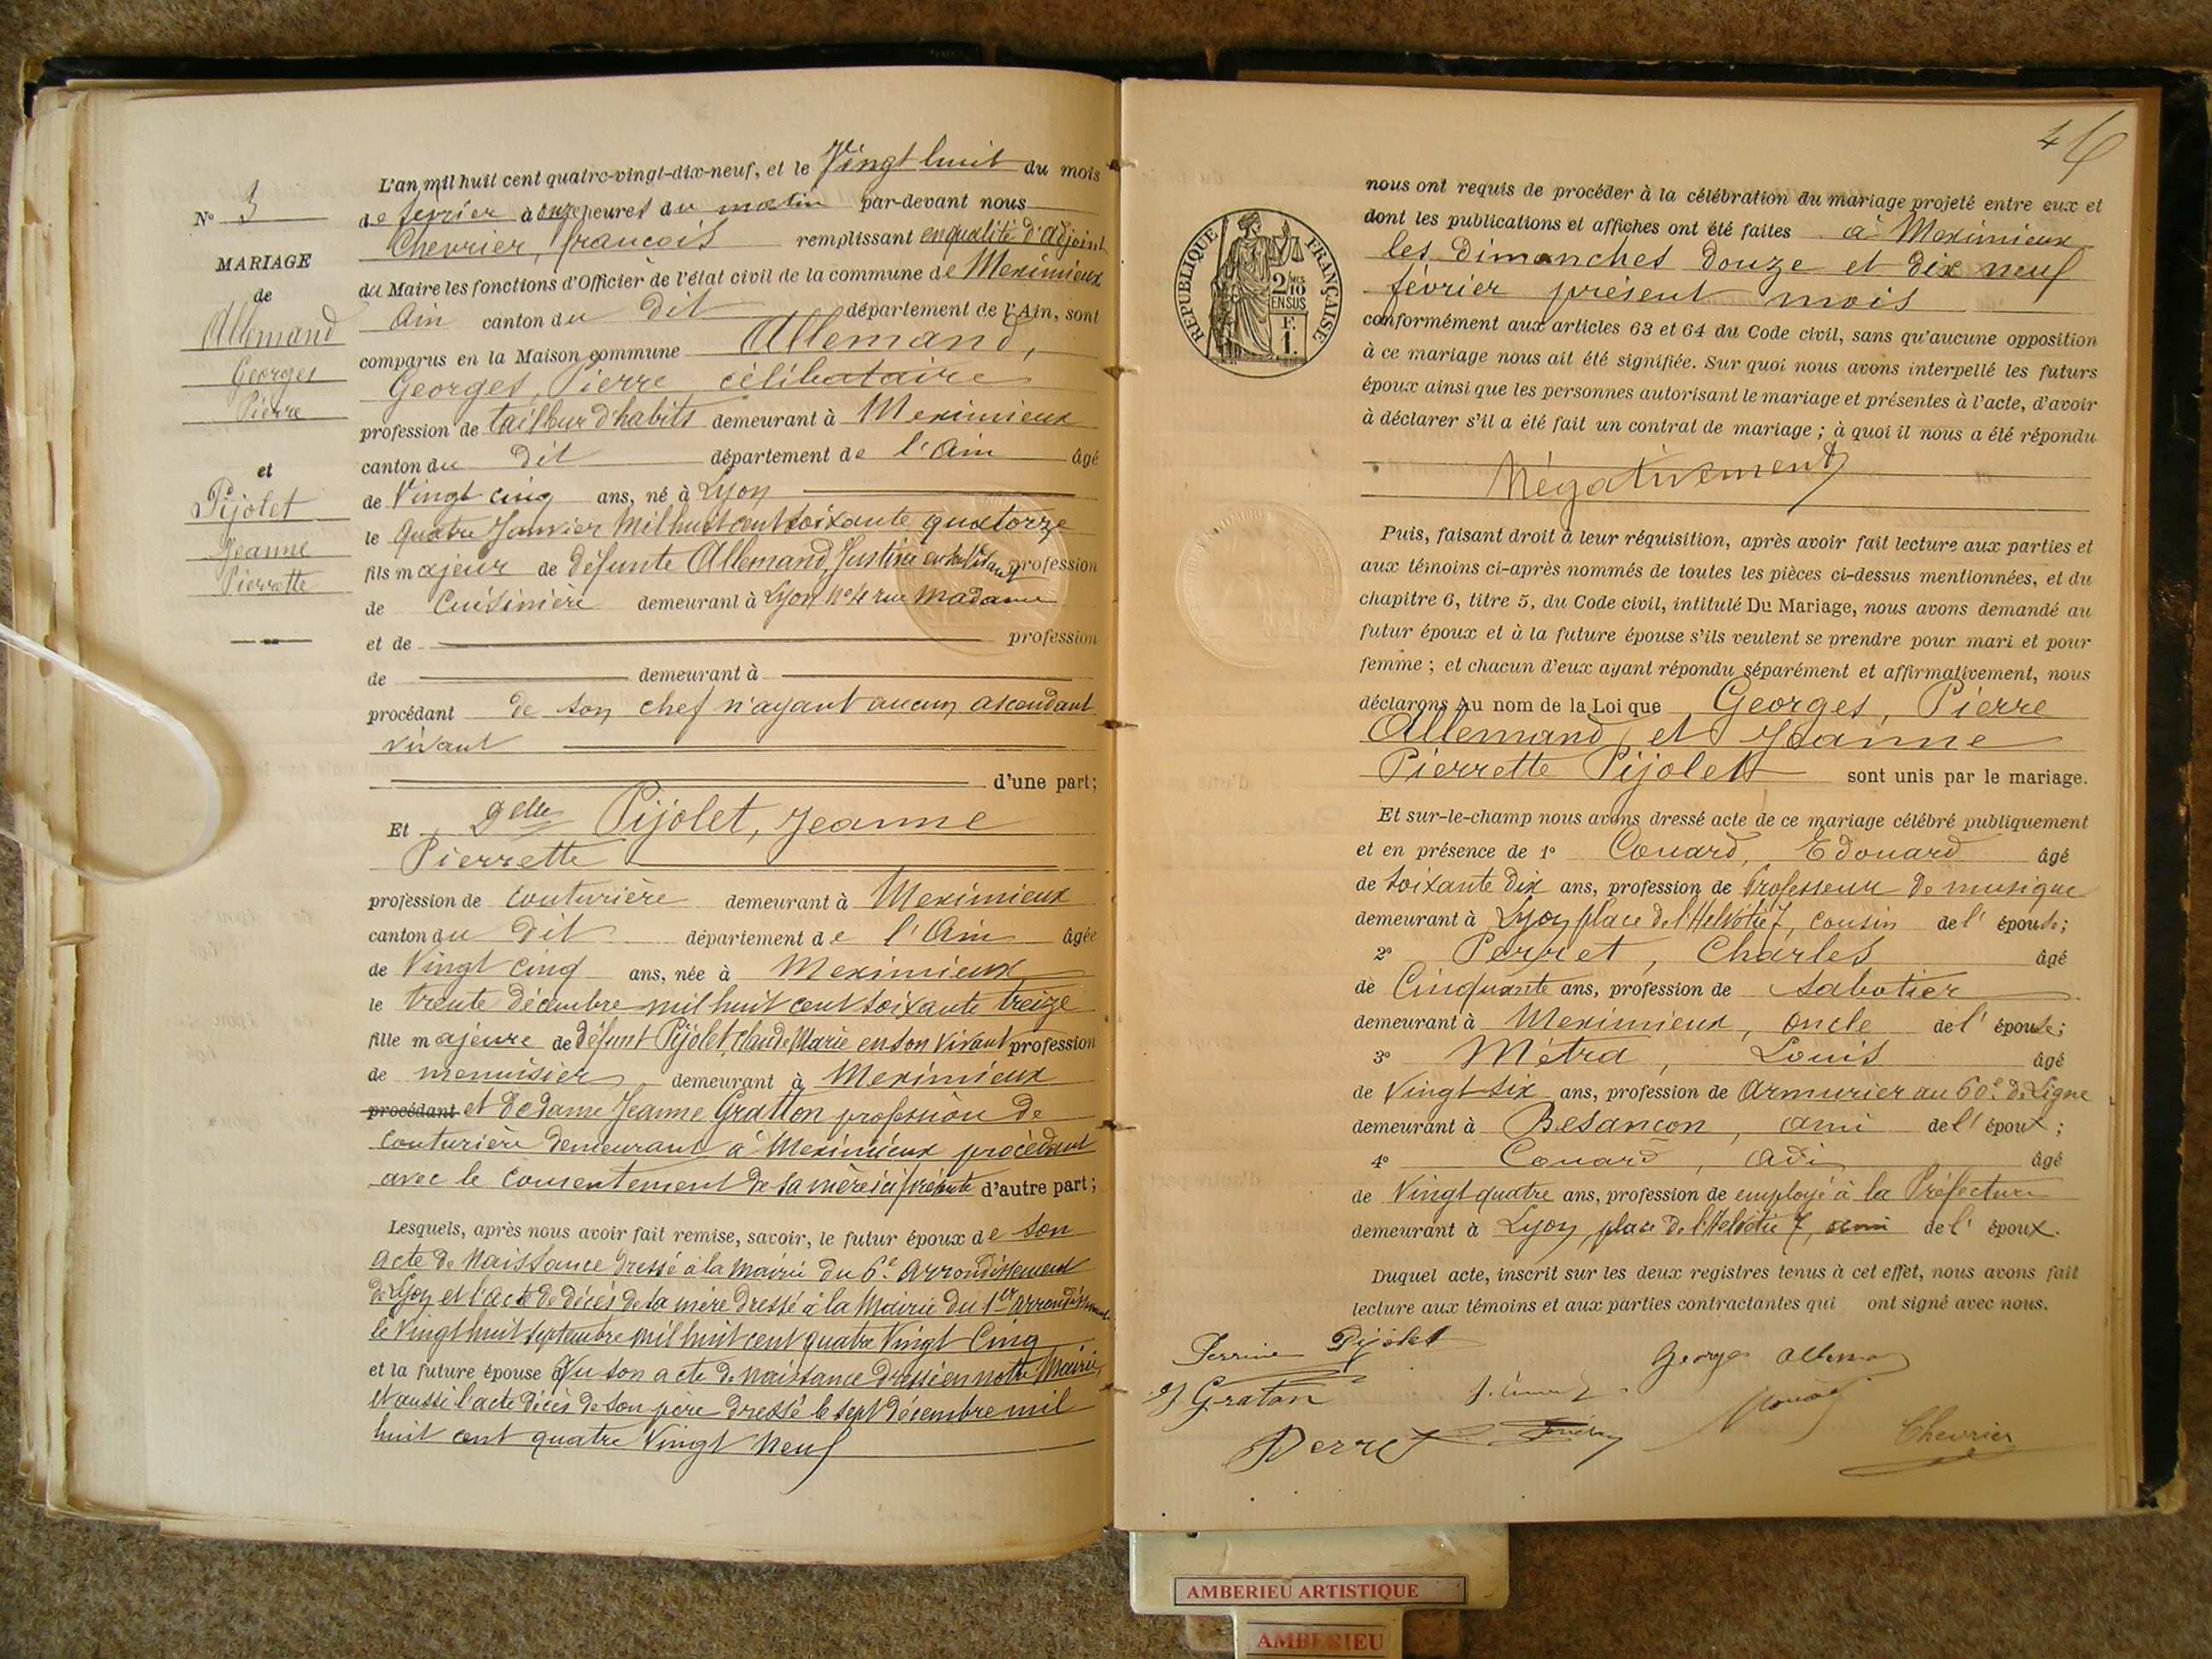 N° 3
MARIAGE
de
Allemand
Georges
Pierre
et
Pijolet
Jeanne
Pierrette
L'an mil huit cent quatre-vingt-dix-neuf, et le Vingt huit du mois
de février à onze heures du matin par-devant nous
Chevrier, francois remplissant en qualité d'Adjoint
du Maire les fonctions d'Officier de l'état civil de la commune de Meximieux
Ain canton du dit département de l'Ain, sont
comparus en la Maison commune Allemand,
Georges, Pierre célibataire
profession de tailleur d'habits demeurant à Meximieux
canton du dit département de l'Ain âgé
de Vingt cinq ans, né à Lyon
le quatre Janvier Mil huit cent soixante quatorze
fils majeur de défunte Allemand, Justine en son vivant profession
de Cuisinière demeurant à Lyon N° 4 rue Madame
et de profession
de demeurant à
procédant de son chef n'ayant aucun ascendant
vivant
d'une part;
Et Delle Pijolet, Jeanne
Pierrette
profession de couturière demeurant à Meximieux
canton du dit département de l'Ain âgée
de Vingt cinq ans, née à Meximieux
le trente décembre mil huit cent soixante treize
fille majeure de défunt Pijolet, Claude Marie en son vivant profession
de menuisier demeurant à Meximieux
procédant et de dame Jeanne Gratton profession de
couturière demeurant à Meximieux procédant
avec le consentement de sa mère ici présente d'autre part;
Lesquels, après nous avoir fait remise, savoir, le futur époux de son
acte de Naissance dressé à la Mairie du 6e arrondissement
de Lyon et l'acte de décès de sa mère dressé à la Mairie du 1er arrondissement
le Vingt huit septembre mil huit cent quatre Vingt Cinq
et la future épouse du son acte de naissance dressé en notre Mairie,
et aussi l'acte décès de son père dressé le sept décembre mil
huit cent quatre Vingt neuf
nous ont requis de procéder à la célébration du mariage projeté entre eux et
dont les publications et affiches ont été faites à Meximieux
les Dimanches Douze et Dix neuf
février présent mois
conformément aux articles 63 et 64 du Code civil, sans qu'aucune opposition
à ce mariage nous ait été signifiée. Sur quoi nous avons interpellé les futurs
époux ainsi que les personnes autorisant le mariage et présentes à l'acte, d'avoir
à déclarer s'il a été fait un contrat de mariage ; à quoi il nous a été répondu
Négativement
Puis, faisant droit à leur réquisition, après avoir fait lecture aux parties et
aux témoins ci-après nommés de toutes les pièces ci-dessus mentionnées, et du
chapitre 6, titre 5, du Code civil, intitulé Du Mariage, nous avons demandé au
futur époux et à la future épouse s'ils veulent se prendre pour mari et pour
femme ; et chacun d'eux ayant répondu séparément et affirmativement, nous
déclarons Au nom de la Loi que Georges, Pierre
Allemand et Jeanne
Pierrette Pijolet sont unis par le mariage.
Et sur-le-champ nous avons dressé acte de ce mariage célébré publiquement
et en présence de 1° Couard, Edouard âgé
de soixante dix ans, profession de Professeur de musique
demeurant à Lyon place de l'Helvétie 7, cousin de l'épouse;
2° Perret, Charles âgé
de Cinquante ans, profession de sabotier
demeurant à Meximieux, oncle de l'épouse;
3° Métra, Louis âgé
de Vingt six ans, profession de Armurier au 60e de Ligne
demeurant à Besancon, ami de l'époux;
4° Couard, Adi âgé
de Vingt quatre ans, profession de employé à la Préfecture
demeurant à Lyon, place de l'Helvétie 7, ami de l'époux.
Duquel acte, inscrit sur les deux registres tenus à cet effet, nous avons fait
lecture aux témoins et aux parties contractantes qui ont signé avec nous.
Perrine Pijolet
J Gratan
Perret
Chevrier
RÉPUBLIQUE FRANÇAISE
2/10 EN SUS
F. 1.
AMBERIEU ARTISTIQUE
AMBERIEU